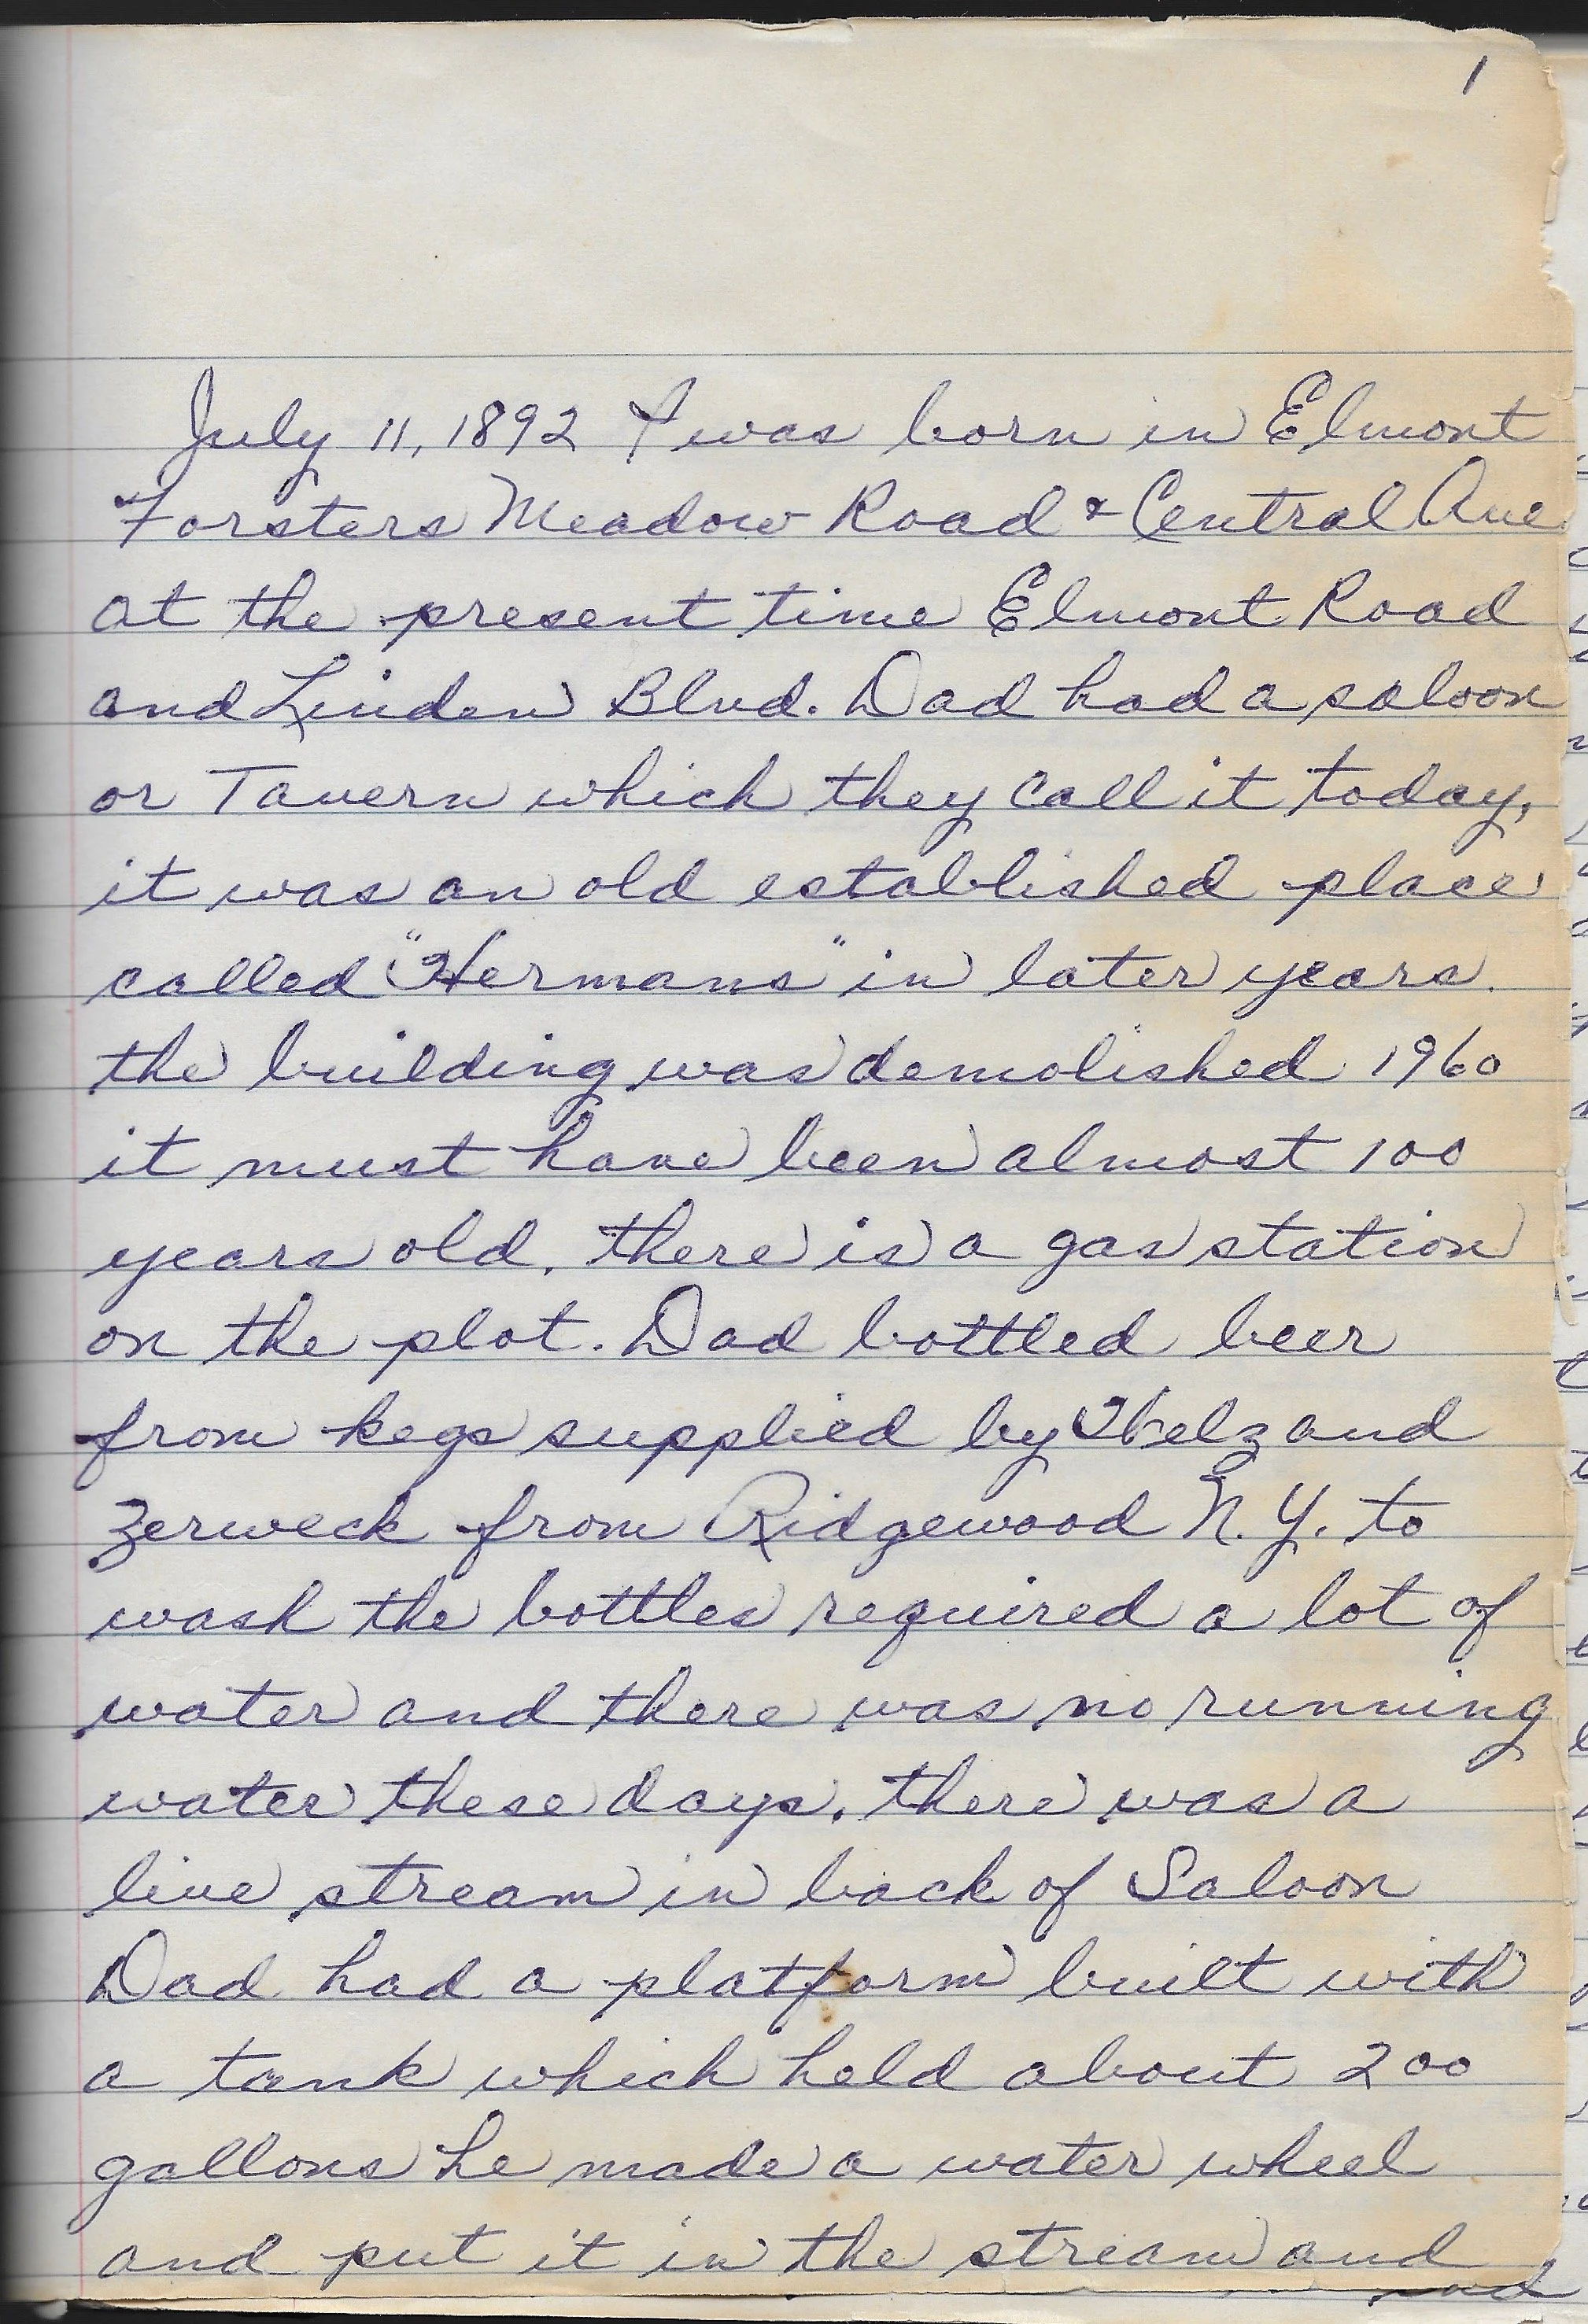 1
July 11, 1892 I was born in Elmont
Forsters Meadow Road & Central Ave
at the present time Elmont Road
and Linden Blvd. Dad had a saloon
or Tavern which they call it today,
it was an old established place
called "Hermans" in later years.
the building was demolished 1960
it must have been almost 100
years old, there is a gas station
on the plot. Dad bottled beer
from kegs supplied by and
Zerweck from Ridgewood N.Y. to
wash the bottles required a lot of
water and there was no running
water these days, there was a
live stream in back of Saloon
Dad had a platform built with
a tank which held about 200
gallons he made a water wheel
and put it in the stream and